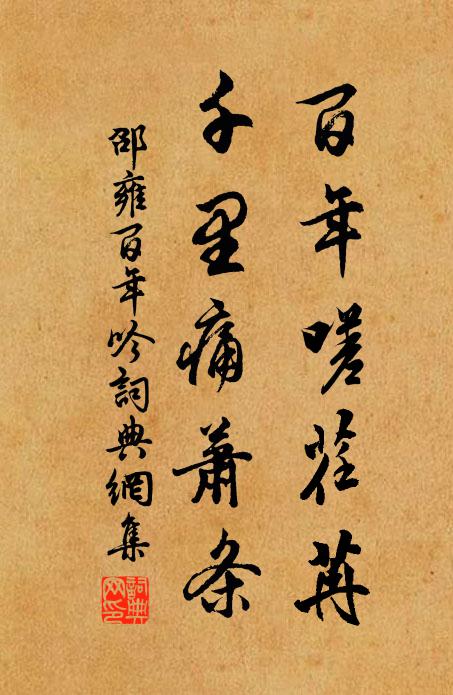 百年嗟荏苒
千里痛蕭条
邵雍百年吟詞典網集
詞典网印